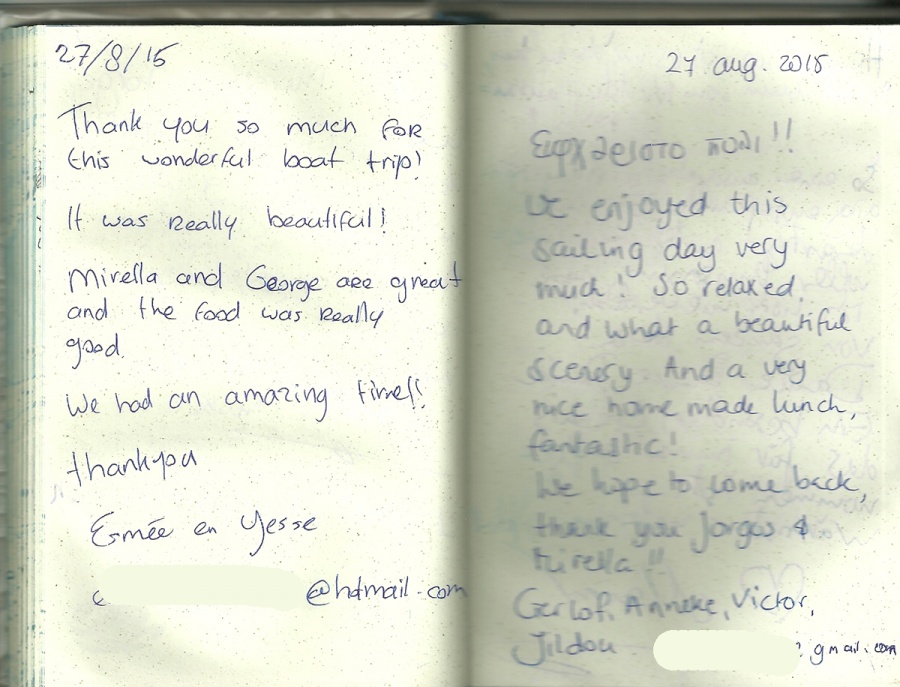 27/8/15
Thank you so much for
this wonderful boat trip!
It was really beautiful!
Mirella and George are great
and the food was really
good.
We had an amazing time!!
thankyou
Esmée en Yesse
@hotmail.com
27 aug. 2015
πολι!!
We enjoyed this
sailing day very
much! So relaxed,
and what a beautiful
scenery. And a very
nice home made lunch,
fantastic!
We hope to come back,
thank you Jorgos &
Mirella!!
Gerlof, Anneke, Victor,
Jildou
gmail.com